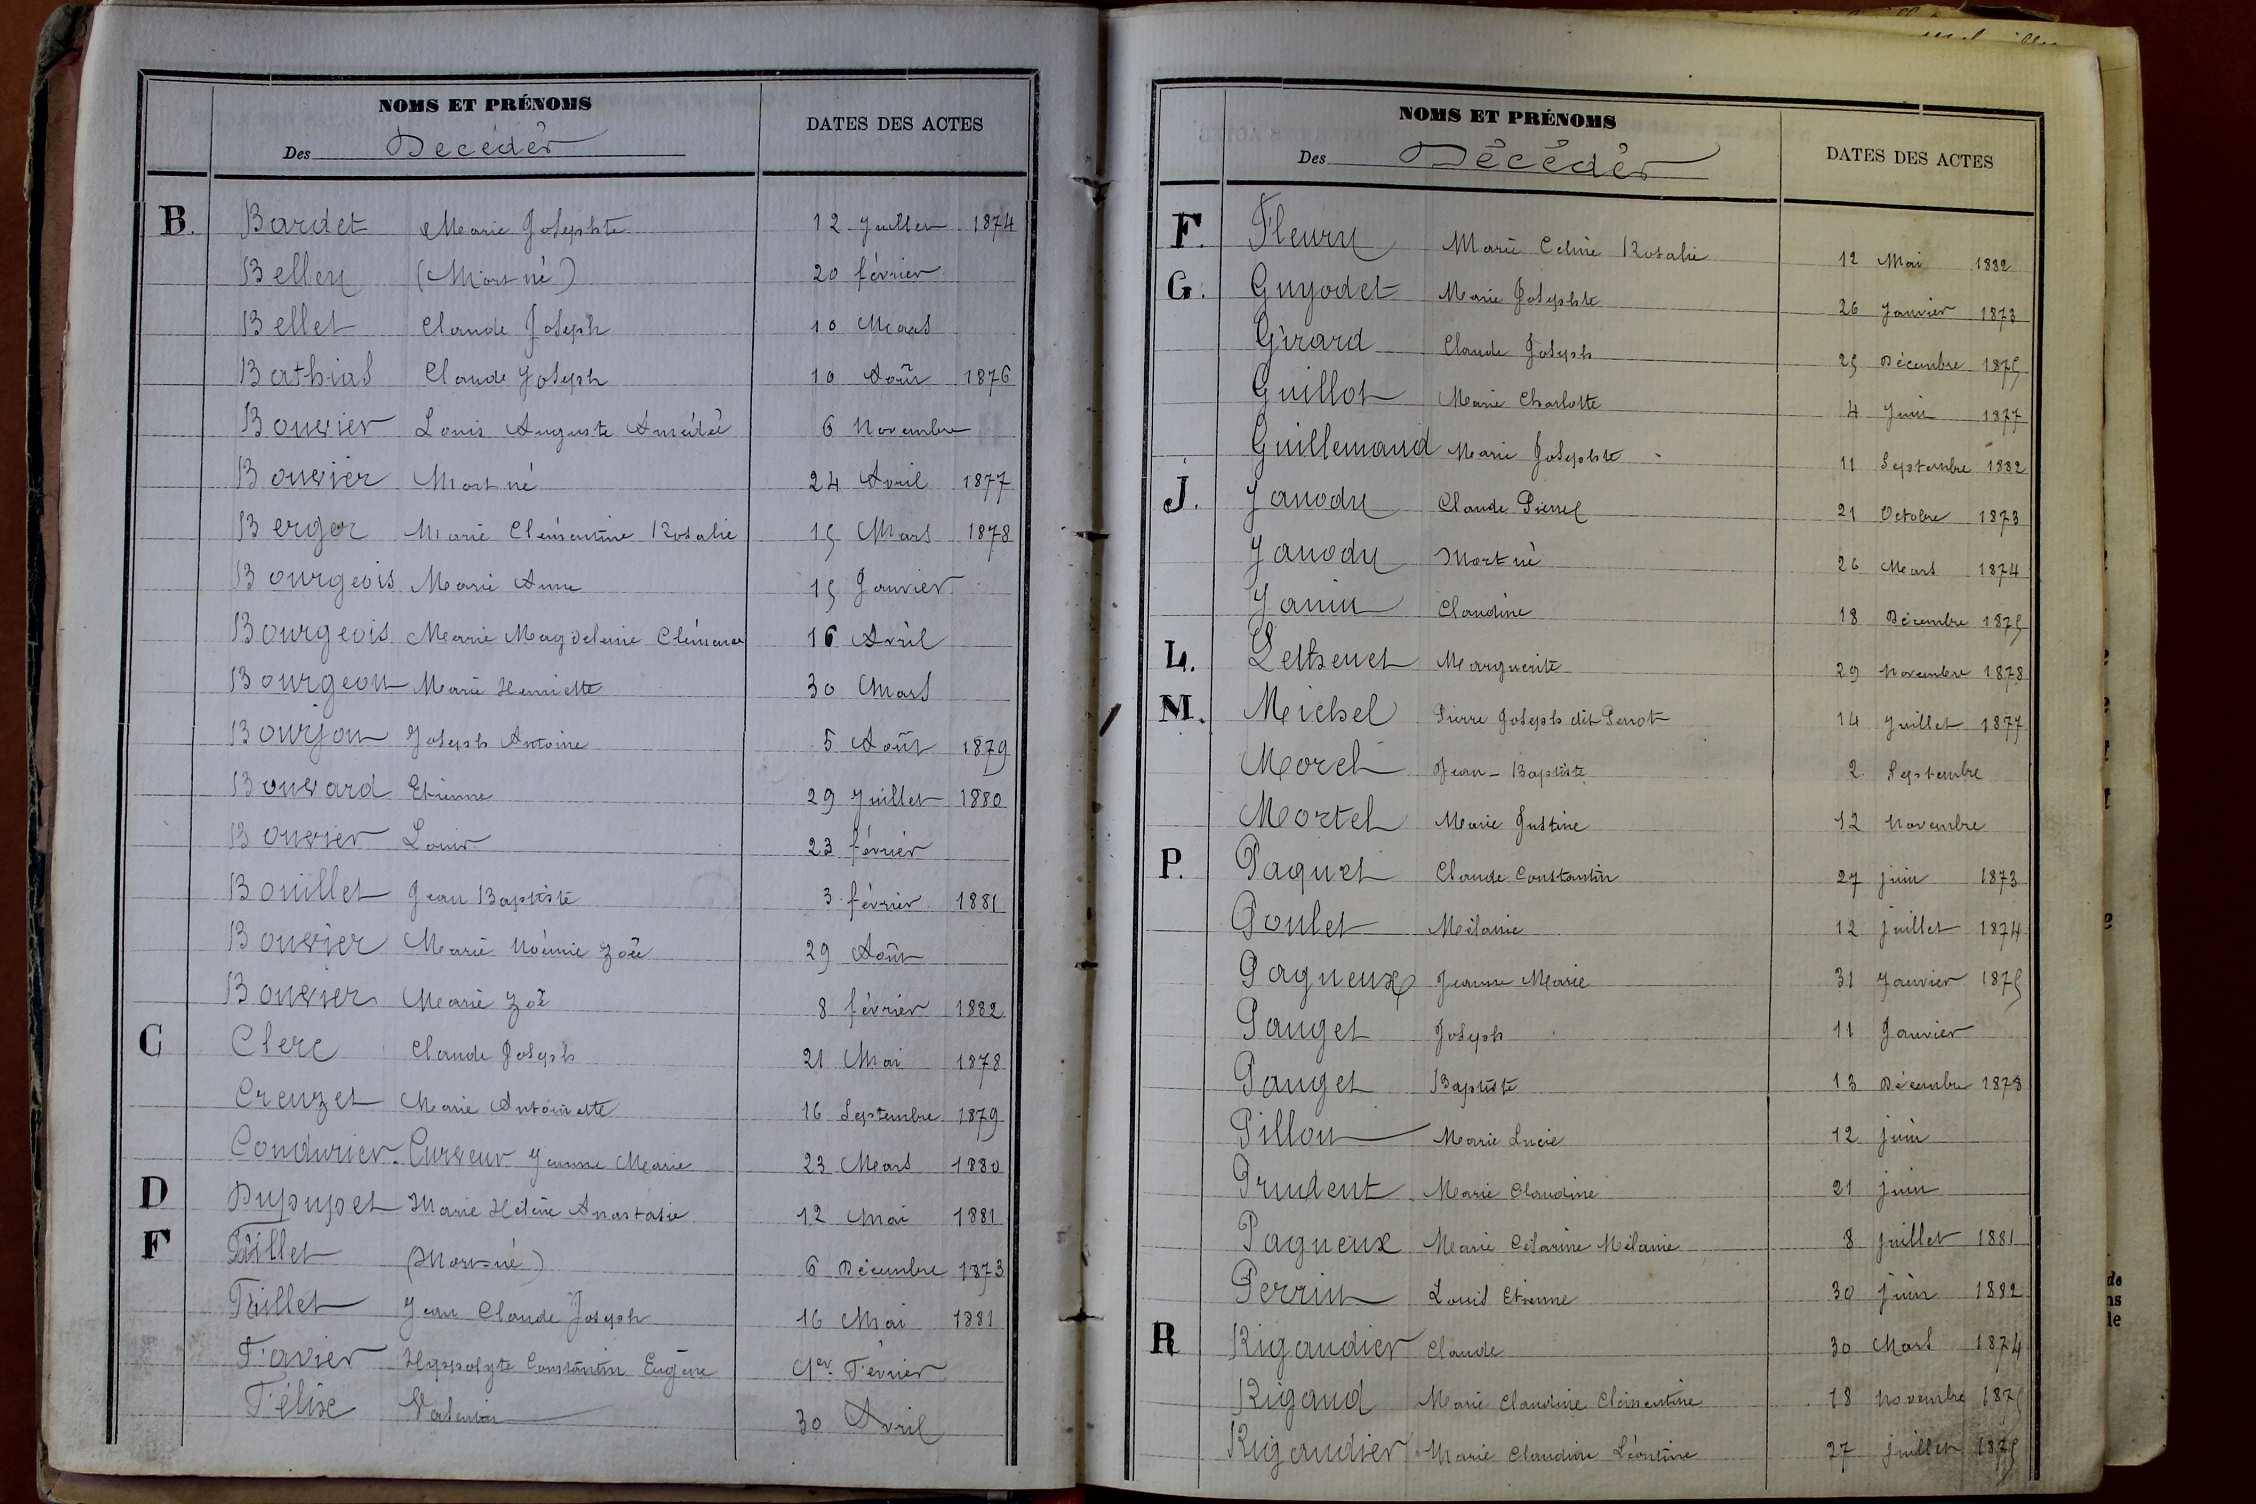 NOMS ET PRÉNOMS
Des Décédés
DATES DES ACTES
B. Bardet Marie Josephte 12 Juillet 1874
Belley (Mort né) 20 février
Bellet Claude Joseph 10 Mars
Bathias Claude Joseph 10 Août 1876
Bouvier Louis Auguste Amédée 6 Novembre
Bouvier Mort né 24 Avril 1877
Berger Marie Clémentine Rosalie 15 Mars 1878
Bourgeois Marie Anne 15 Janvier
Bourgeois Marie Magdeleine Clémence 16 Avril
Bourgeon Marie Henriette 30 Mars
Bourjon Joseph Antoine 5 Août 1879
Bouvard Etienne 29 Juillet 1880
Bouvier Louis 23 février
Bouillet Jean Baptiste 3 février 1881
Bouvier Marie Noémie Zoë 29 Août
Bouvier Marie Zoë 8 février 1882
C Clerc Claude Joseph 21 Mai 1878
Creuzet Marie Antoinette 16 Septembre 1879
Condurier. Curveur Jeanne Marie 23 Mars 1880
D Dupupet Marie Hélène Anastasie 12 Mai 1881
F Fillet (Mort-né) 6 Décembre 1873
Fillet Jean Claude Joseph 16 Mai 1881
Favier Hyppolyte Constantin Eugène 1er Février
Félix Valentin 30 Avril
NOMS ET PRÉNOMS
Des Décédés
DATES DES ACTES
F. Fleury Marie Celine Rosalie 12 Mai 1882
G. Guyodet Marie Josephte 26 Janvier 1873
Girard Claude Joseph 25 Décembre 1875
Guillot Marie Charlotte 4 Juin 1877
Guillemaud Marie Josephte 11 Septembre 1882
J. Janody Claude Pierre 21 Octobre 1873
Janody Mort né 26 Mars 1874
Janin Claudine 18 Décembre 1875
L. Lethenet Marguerite 29 Novembre 1878
M. Michel Pierre Joseph dit Perrot 14 Juillet 1877
Morel Jean-Baptiste 2 Septembre
Mortel Marie Justine 12 Novembre
P. Paquet Claude Constantin 27 juin 1873
Poulet Mélanie 12 juillet 1874
Pagneux Jeanne Marie 31 Janvier 1875
Pauget Joseph 11 Janvier
Pauget Baptiste 13 Décembre 1878
Pillon Marie Lucie 12 juin
Prudent Marie Claudine 21 juin
Pagneux Marie Césarine Mélanie 8 juillet 1881
Perrin Louis Etienne 30 juin 1882
R Rigaudier Claude 30 Mars 1874
Rigaud Marie Claudine Clémentine 18 Novembre 1875
Rigaudier Marie Claudine Léontine 27 juillet 1875